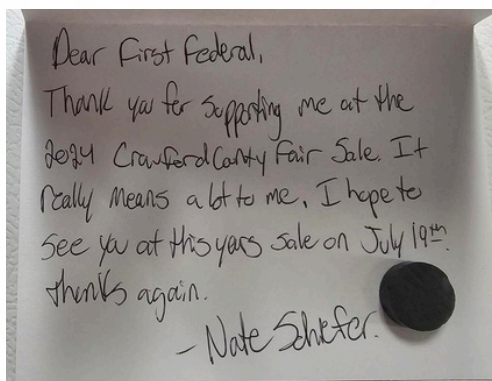 Dear First Federal,
Thank you for supporting me at the
2024 Crawford County Fair Sale. It
really means a lot to me. I hope to
see you at this years sale on July 19th.
thanks again.
- Nate Schiefer.